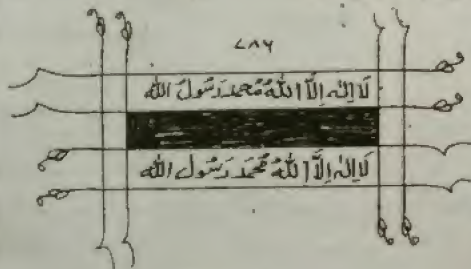 ۷۸۶
لَا اِلٰہَ اِلَّا اللّٰہُ مُحَمَّد رَسُولُ اللّٰہ
لَا اِلٰہَ اِلَّا اللّٰہُ مُحَمَّد رَسُولُ اللّٰہ